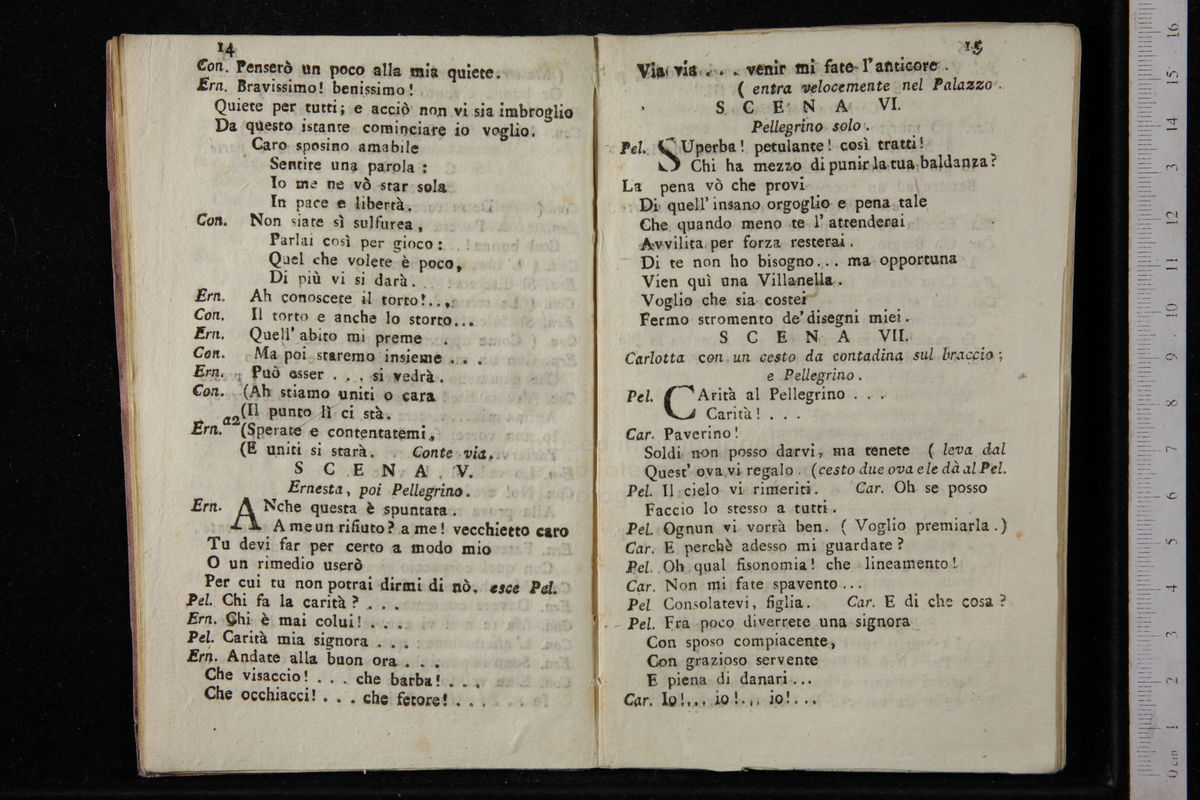 14
Con. Penserò un poco alla mia quiete.
Ern. Bravissimo! benissimo!
Quiete per tutti; e acciò non vi sia imbroglio
Da questo istante cominciare io voglio.
Caro sposino amabile
Sentite una parola:
Io me ne vò star sola
In pace e libertà.
Con. Non siate sì sulfurea,
Parlai così per gioco:
Quel che volete è poco,
Di più vi si darà.
Ern. Ah conoscete il torto!...
Con. Il torto e anche lo storto...
Ern. Quell' abito mi preme
Con. Ma poi staremo insieme ...
Ern. Può esser ... si vedrà.
Con. (Ah stiamo uniti o cara
a2 (Il punto lì ci stà.
Ern. (Sperate e contentatemi,
(E uniti si starà. Conte via.
SCENA V.
Ernesta, poi Pellegrino.
Ern. ANche questa è spuntata.
A me un rifiuto? a me! vecchietto caro
Tu devi far per certo a modo mio
O un rimedio userò
Per cui tu non potrai dirmi di nò. esce Pel.
Pel. Chi fa la carità? ...
Ern. Chi è mai colui! ...
Pel. Carità mia signora ...
Ern. Andate alla buon ora ...
Che visaccio! ... che barba! ...
Che occhiacci! ... che fetore! ...
15
Via via ... venir mi fate l'anticore.
( entra velocemente nel Palazzo.
SCENA VI.
Pellegrino solo.
Pel. SUperba! petulante! così tratti!
Chi ha mezzo di punir la tua baldanza?
La pena vò che provi
Di quell' insano orgoglio e pena tale
Che quando meno te l' attenderai
Avvilita per forza resterai.
Di te non ho bisogno... ma opportuna
Vien quì una Villanella.
Voglio che sia costei
Fermo stromento de' disegni miei.
SCENA VII.
Carlotta con un cesto da contadina sul braccio;
e Pellegrino.
Pel. CArità al Pellegrino ...
Carità! ...
Car. Paverino!
Soldi non posso darvi, ma tenete ( leva dal
Quest' ova vi regalo. (cesto due ova e le dà al Pel.
Pel. Il cielo vi rimeriti. Car. Oh se posso
Faccio lo stesso a tutti.
Pel. Ognun vi vorrà ben. ( Voglio premiarla.)
Car. E perchè adesso mi guardate?
Pel. Oh qual fisonomia! che lineamento!
Car. Non mi fate spavento...
Pel Consolatevi, figlia. Car. E di che cosa?
Pel. Fra poco diverrete una signora
Con sposo compiacente,
Con grazioso servente
E piena di danari...
Car. Io!... io!... io!...
0 cm 1 2 3 4 5 6 7 8 9 10 11 12 13 14 15 16